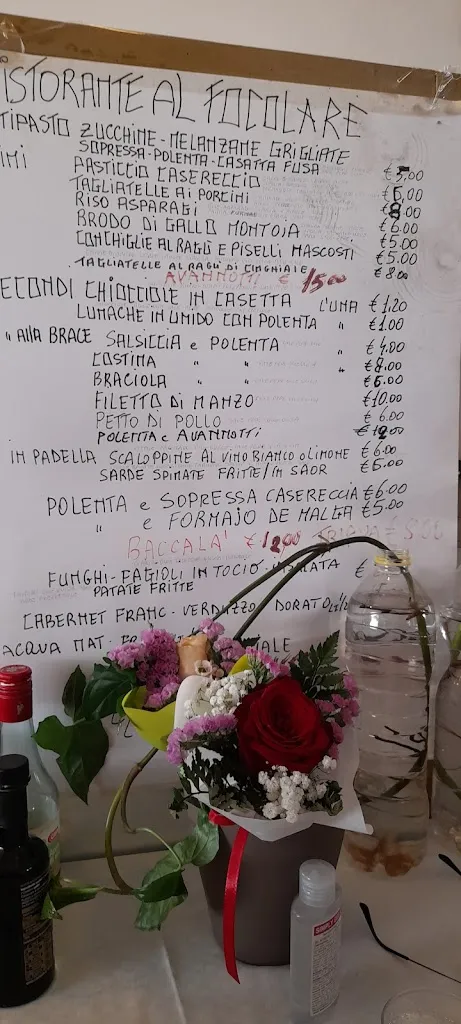 ISTORANTE AL FOCOLARE
TIPASTO ZUCCHINE-MELANZANE GRIGLIATE
SOPRESSA-POLENTA-CASATTA FUSA €5,00
IMI PASTICCIO CASERECCIO €6,00
TAGLIATELLE AI PORCINI €8.00
RISO ASPARAGI €6.00
BRODO DI GALLO MONTOJA €5.00
CONCHIGLIE AL RAGÙ E PISELLI MASCOSTI €5.00
TAGLIATELLE AL RAGÙ DI CINGHIALE €8.00
AVANNOTTI € 15.00
ECONDI CHIOCCIOLE IN CASETTA L'UNA €1.20
LUMACHE IN UMIDO CON POLENTA " €1.00
" Alla BRACE SALSICCIA e POLENTA " €4.00
COSTINA " " " €8.00
BRACIOLA " " €6.00
FILETTO DI MANZO €10.00
PETTO DI POLLO € 6.00
POLENTA e AVANNOTTI
IN PADELLA SCALOPPINE AL VINO BIANCO O LIMONE €6.00
SARDE SPINATE FRITTE/IN SAOR €6.00
POLENTA e SOPRESSA CASERECCIA €6.00
" e FORMAJO DE MALGA €5.00
BACCALA' €12,00
FUNGHI-FAGIOLI IN TOCIO-INSALATA €
PATATE FRITTE
CABERNET FRANC-VERDUZZO DORATO
ACQUA NAT-